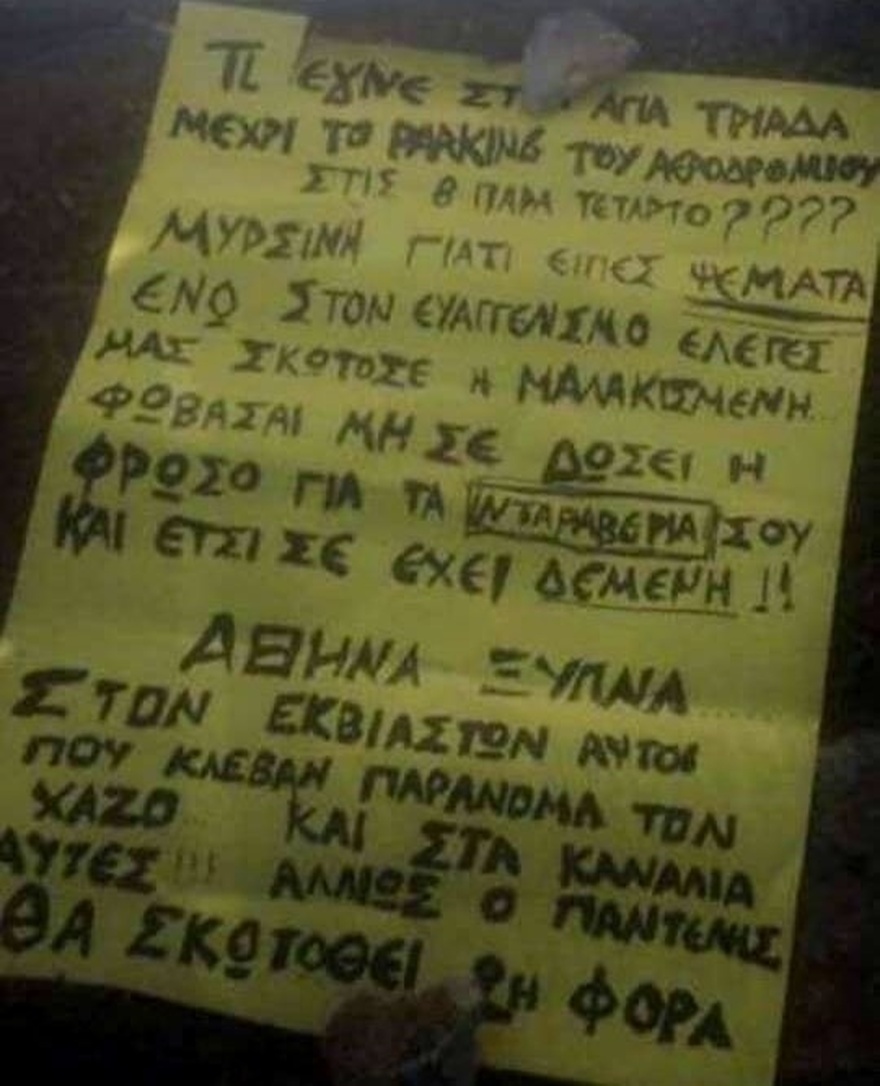 ΤΙ ΕΓΙΝΕ ΣΤ ΑΓΙΑ ΤΡΙΑΔΑ
ΜΕΧΡΙ ΤΟ PARKING ΤΟΥ ΑΕΡΟΔΡΟΜΙΟΥ
ΣΤΙΣ 8 ΠΑΡΑ ΤΕΤΑΡΤΟ????
ΜΥΡΣΙΝΗ ΓΙΑΤΙ ΕΙΠΕΣ ΨΕΜΑΤΑ
ΕΝΩ ΣΤΟΝ ΕΥΑΓΓΕΝΙΣΜΟ ΕΛΕΓΕΣ
ΜΑΣ ΣΚΩΤΟΣΕ Η ΜΑΛΑΚΙΣΜΕΝΗ
ΦΩΒΑΣΑΙ ΜΗ ΣΕ ΔΩΣΕΙ Η
ΦΡΩΣΟ ΓΙΑ ΤΑ ΙΝΤΑΡΑΒΕΡΙΑ ΣΟΥ
ΚΑΙ ΕΤΣΙ ΣΕ ΕΧΕΙ ΔΕΜΕΝΗ!!
ΑΘΗΝΑ ΞΥΠΝΑ......
ΣΤΟΝ ΕΚΒΙΑΣΤΩΝ ΑΥΤΟΙ
ΠΟΥ ΚΛΕΒΑΝ ΠΑΡΑΝΟΜΑ ΤΟΝ
ΧΑΖΟ... ΚΑΙ ΣΤΑ ΚΑΝΑΛΙΑ
ΑΥΤΕΣ!!! ΑΛΛΙΩΣ Ο ΠΑΝΤΕΛΗΣ
ΘΑ ΣΚΩΤΟΘΕΙ 2Η ΦΟΡΑ